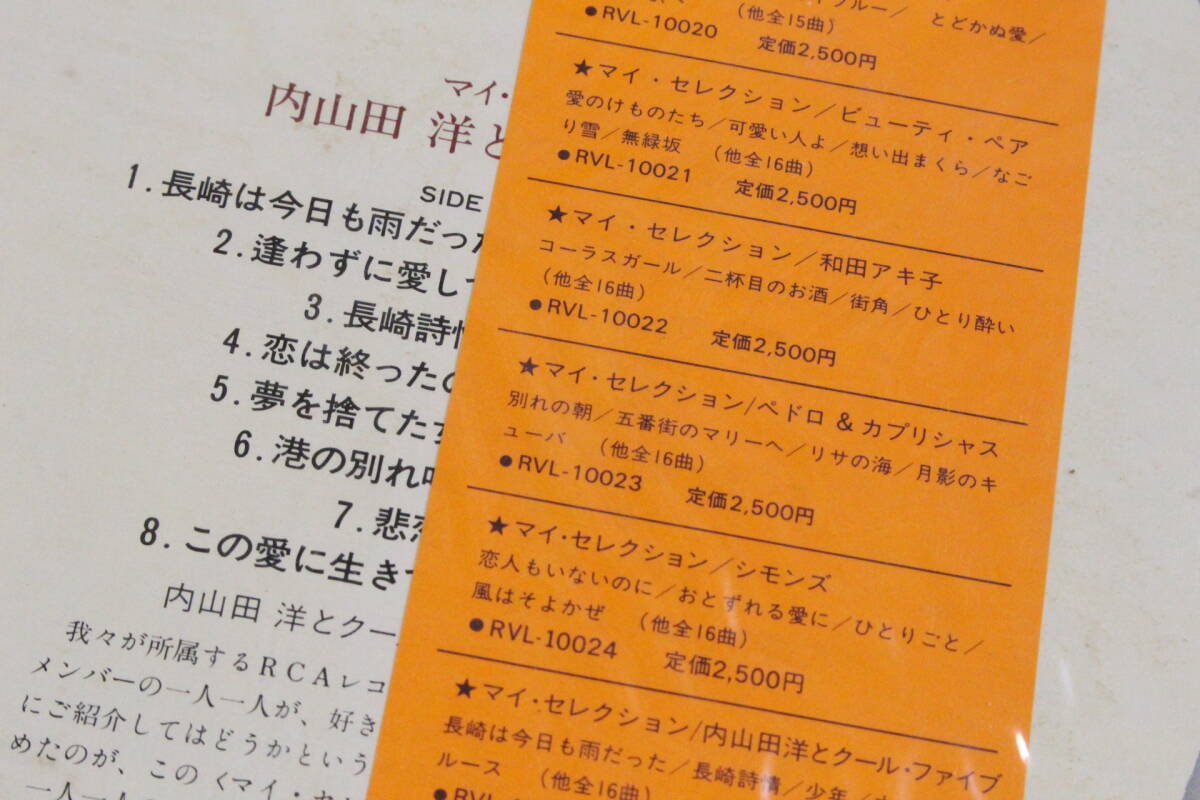 マイ・
内山田 洋と
SIDE
1.長崎は今日も雨だった
2.逢わずに愛して
3.長崎詩情
4.恋は終ったの
5.夢を捨てた
6.港の別れ
7.悲恋
8.この愛に生きて
内山田 洋とクー
我々が所属するRCAレコ
メンバーの一人一人が、好き
にご紹介してはどうかという
めたのが、この〈マイ・セ
一人一人
ブルー／ とどかぬ愛／
(他全15曲)
●RVL-10020 定価2,500円
★マイ・セレクション／ビューティ・ペア
愛のけものたち／可愛い人よ／想い出まくら／なご
り雪／無緑坂 (他全16曲)
●RVL-10021 定価2,500円
★マイ・セレクション／和田アキ子
コーラスガール／二杯目のお酒／街角／ひとり酔い
(他全16曲)
●RVL-10022 定価2,500円
★マイ・セレクション/ペドロ & カプリシャス
別れの朝／五番街のマリーへ／リサの海／月影のキ
ューバ (他全16曲)
●RVL-10023 定価2,500円
★マイ・セレクション／シモンズ
恋人もいないのに／おとずれる愛に／ひとりごと／
風はそよかぜ (他全16曲)
●RVL-10024 定価2,500円
★マイ・セレクション/内山田洋とクール・ファイブ
長崎は今日も雨だった／長崎詩情／少年／
ルース (他全16曲)
●RVL